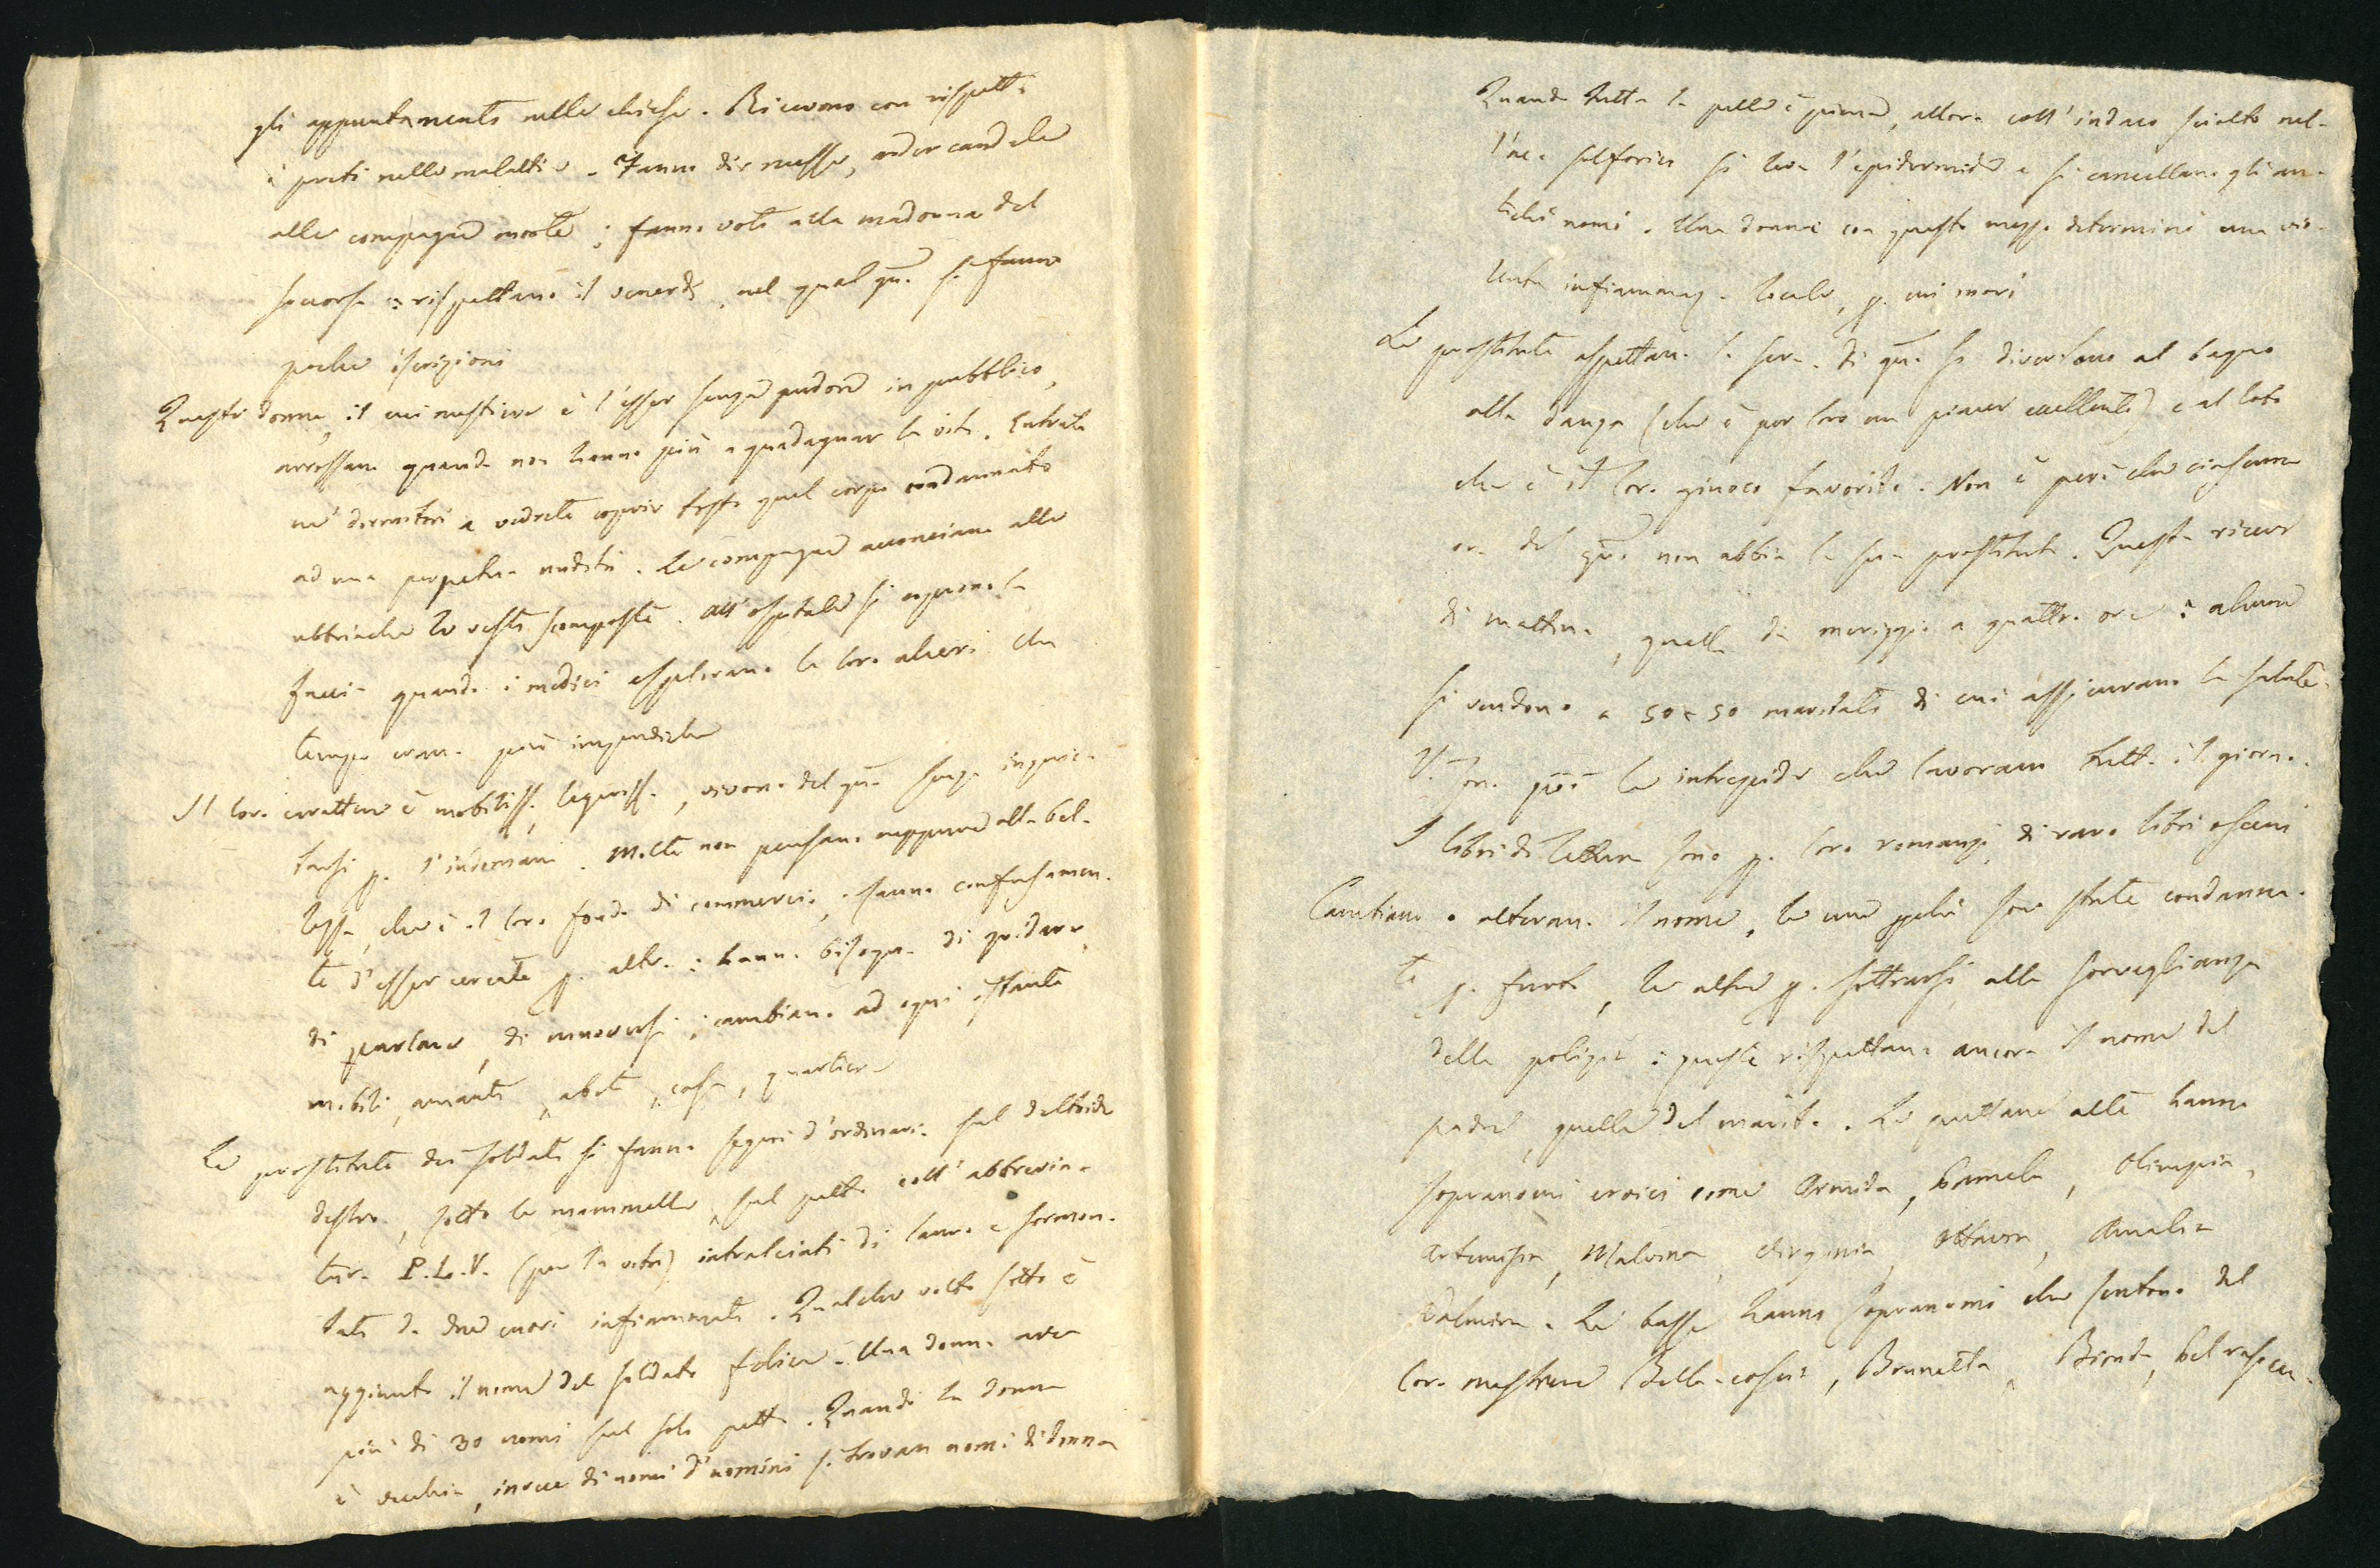 gli appuntamenti nelle chiese. Ricevono con rispetto
i preti nelle malattie. Fanno dir messe, arder candele
alle compagne morte; fanno voti alla madonna del
soccorso e rispettano il venerdì, nel qual gno. si fanno
poche iscrizioni
Queste donne, il cui mestiere è l'esser senza pudore in pubblico,
arrossano quando non hanno più a guadagnar la vita. Entrate
ne' dormitori e vedrete coprir tosto quel corpo condannato
ad una perpetua nudità. Le compagne acconciano alle
ubbriache le vesti scomposte. All'ospitale si coprono la
faccia quando i medici esplorano le loro alveri che
tempo eran. più impudiche
Il loro carattere è mobiliss. leggeriss., vivono del gno. senza inquie-
tarsi p. l'indomani. Molte non pensano neppure alla bel-
lezza, che è il loro fondo di commercio; sanno confusamen-
te d'esser cercate p. altro: hanno bisogno di gridare,
di parlare, di muoversi; cambiano ad ogni istante
mobili, amanti, abiti, casa, quartiere
Le prostitute dei soldati si fanno segni d'ordinario sul deltoide
destro, sotto le mammelle, sul petto coll'abbrevia-
tura P.L.V. (per la vita) intralciati di lauro e sormon-
tati da due cuori infiammati. Qualche volta sotto è
aggiunto il nome del soldato felice. Una donna avea
più di 30 nomi sul solo petto. Quando la donna
è vecchia, invece di nomi d'uomini si trovan nomi di donna
Quando tutta la pelle è piena, allora coll'indaco sciolto nel-
l'ac. solforico si leva l'epidermide e si cancellano gli an-
tichi nomi. Una donna con questo mezzo determinò una vio-
lenta infiammaz. locale, p. cui morì
Le prostitute aspettan. la sera. Di gno. si divertono al bagno
alla danza (che è per loro un piacer eccellente) e al loto
che è il loro giuoco favorito. Non è però che ciascuna
ora del gno. non abbia la sua prostituta. Questa riceve
di mattina, quella da meriggio a quattro ore: alcune
si vendono a 50 e 50 maritati di cui assicurano la salute.
V. son. poi le intrepide che lavoram tutto il giorno.
I libri di lettura sono p. loro romanzi, di raro libri osceni
Cambiano o alteran. il nome, le une pchè son state condanna-
te p. furti, le altre p. sottrarsi alla sorveglianza
della polizia: queste rispettano ancora il nome del
padre, quelle del marito. Le puttane alte hanno
sopranomi eroici come Armida, Pamela, Olimpia,
Artemisia, Malvina, Virginia, Ottavia, Amalia
Palmira. Le basse hanno sopranomi che sentono del
loro mestiere Bella-coscia, Brunetta, Bionda, bel